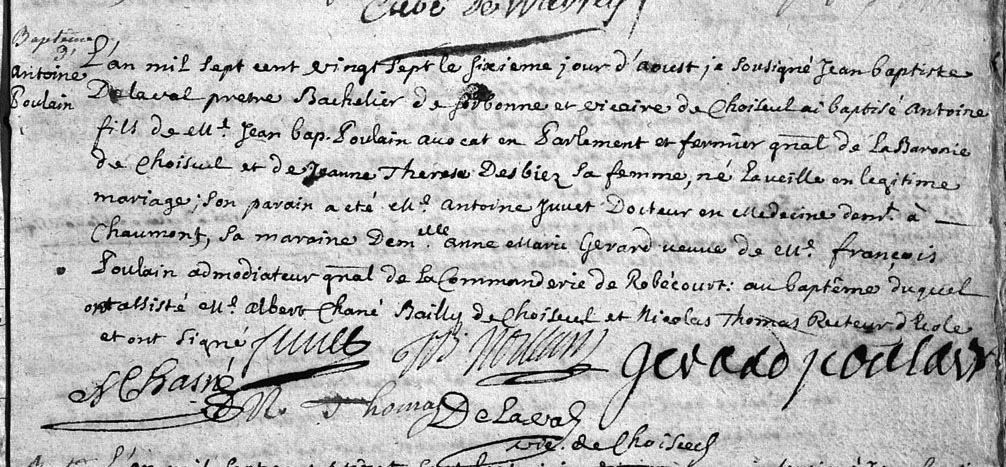 Curé de
Baptême
d'
Antoine
Poulain
L'an mil sept cent vingt sept le sixieme jour d'aoust je sousigné Jean baptiste
Delaval pretre Bachelier de sorbonne et vicaire de Choiseul ai baptisé Antoine
fils de Mr. Jean bap. Poulain avocat en Parlement et fermier gnal de La Baronie
de Choiseul et de Jeanne Therese Desbiez sa femme, né la veille en legitime
mariage; son parain a eté Mr. Antoine Juvet Docteur en Medecine demt. à
Chaumont, sa maraine Demelle anne Marie Gerard veuve de Mr. françois
Poulain admodiateur gnal de la Commanderie de Robécourt: au baptême duquel
ont assisté Mr. albert Chané Bailly de Choiseul et Nicolas Thomas Recteur d'Ecole
et ont signé Juvet JB. Poulain gerard poulain
A Chané N. Thomas Delaval
vic. de Choiseul
L'an mil sept cent